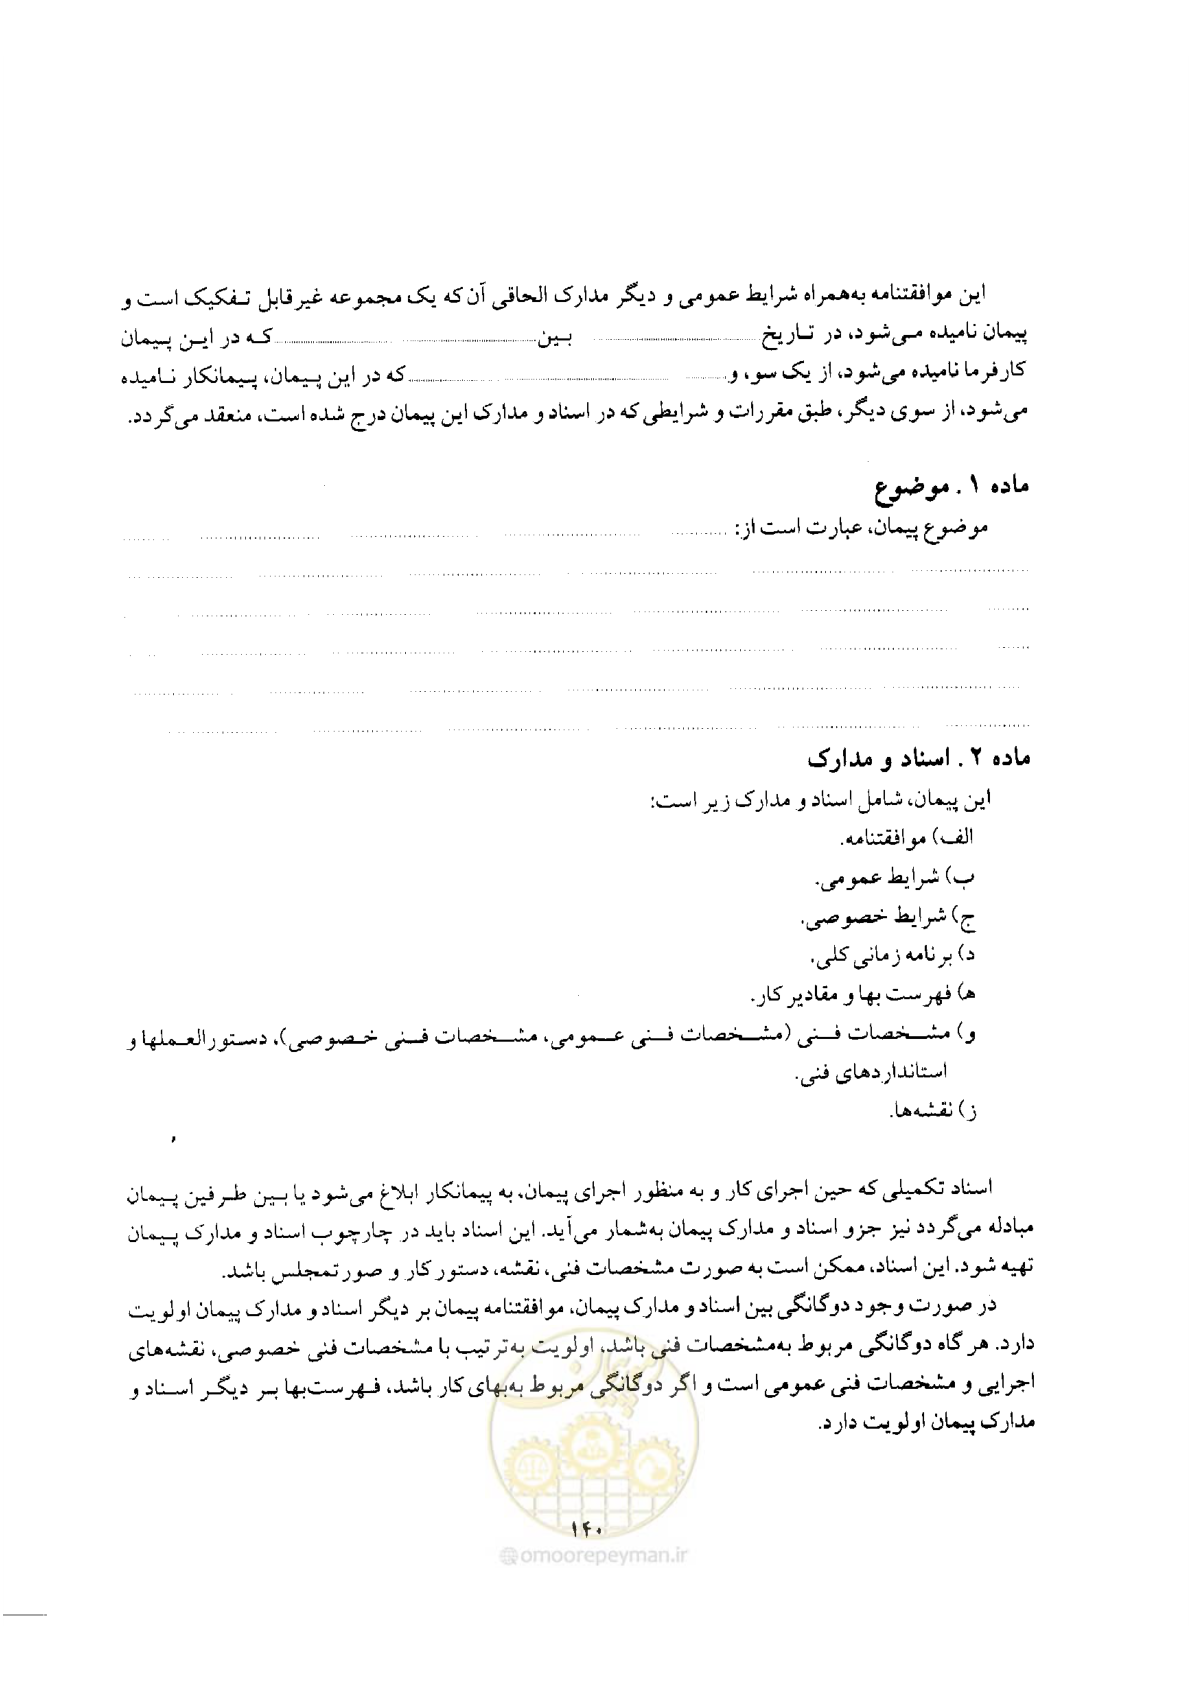 این موافقتنامه به‌همراه شرایط عمومی و دیگر مدارک الحاقی آن که یک مجموعه غیرقابل تـفکیک است و
پیمان نامیده مـی‌شود، در تـاریخ ........................ بـین ........................ کـه در ایـن پـیمان
کارفرما نامیده می‌شود، از یک سو، و ........................ که در این پـیمان، پـیمانکار نـامیده
می‌شود، از سوی دیگر، طبق مقررات و شرایطی که در اسناد و مدارک این پیمان درج شده است، منعقد می‌گردد.
ماده ۱ . موضوع
موضوع پیمان، عبارت است از: ........................
ماده ۲ . اسناد و مدارک
این پیمان، شامل اسناد و مدارک زیر است:
الف) موافقتنامه.
ب) شرایط عمومی.
ج) شرایط خصوصی.
د) برنامه زمانی کلی.
ه) فهرست بها و مقادیر کار.
و) مشـخصات فـنی (مشـخصات فـنی عـمومی، مشـخصات فـنی خـصوصی)، دستورالعـملها و
استانداردهای فنی.
ز) نقشه‌ها.
اسناد تکمیلی که حین اجرای کار و به منظور اجرای پیمان، به پیمانکار ابلاغ می‌شود یا بـین طـرفین پـیمان
مبادله می‌گردد نیز جزو اسناد و مدارک پیمان به‌شمار می‌آید. این اسناد باید در چارچوب اسناد و مدارک پـیمان
تهیه شود. این اسناد، ممکن است به صورت مشخصات فنی، نقشه، دستور کار و صورتمجلس باشد.
در صورت وجود دوگانگی بین اسناد و مدارک پیمان، موافقتنامه پیمان بر دیگر اسناد و مدارک پیمان اولویت
دارد. هر گاه دوگانگی مربوط به‌مشخصات فنی باشد، اولویت به‌ترتیب با مشخصات فنی خصوصی، نقشه‌های
اجرایی و مشخصات فنی عمومی است و اگر دوگانگی مربوط به‌بهای کار باشد، فـهرست‌بها بـر دیگـر اسـناد و
مدارک پیمان اولویت دارد.
امور پیمان
۱۴۰
@omoorepeyman.ir